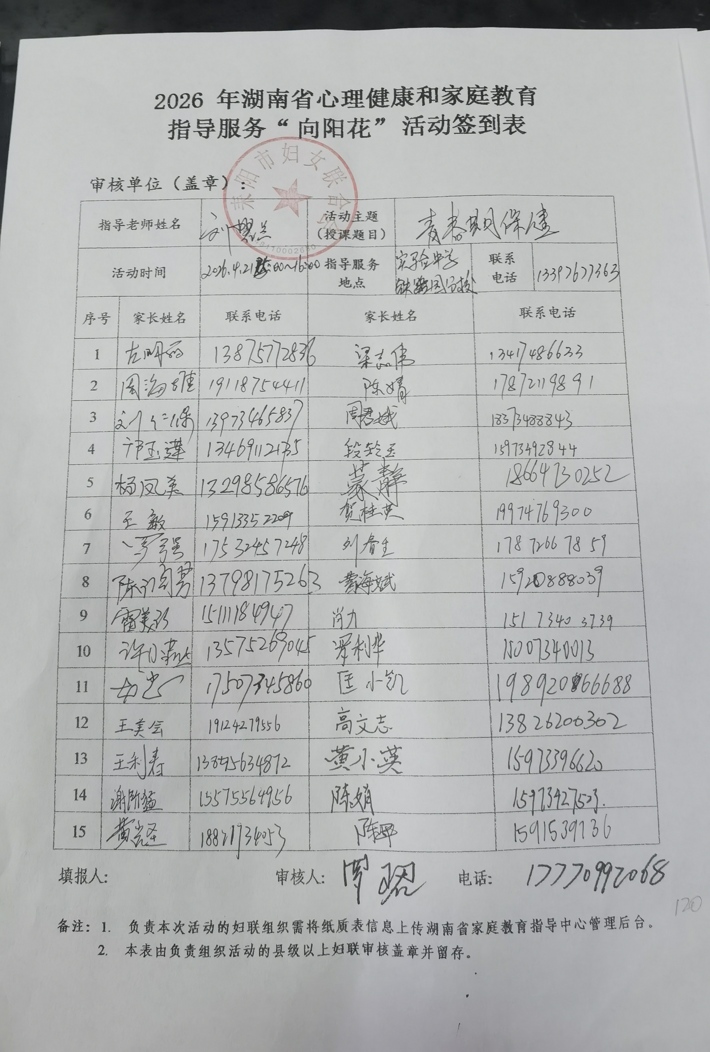 2026 年湖南省心理健康和家庭教育
指导服务“向阳花”活动签到表
耒阳市妇女联合会
审核单位（盖章）：
指导老师姓名 活动主题（授课题目） 青春期保健
活动时间 2026.4.21 15:00~16:00 指导服务地点 实验中学 铁路园分校 联系电话 13397677363
序号 家长姓名 联系电话 家长姓名 联系电话
1 左明丽 13875772836 梁志伟 13417486633
2 周海雄 19118754411 陈婧 17872119891
3 13973465837 周君娥 18373488843
4 邝玉莲 13469112135 15973492844
5 杨凤英 13298586576 蒙静 18664730252
6 王敏 15913352209 贺桂英 19974769300
7 罗强 17532457248 刘春生 17872667859
8 13798175263 黄海斌 15920888039
9 雷美玲 15111184947 肖力 15173403739
10 13575269045 罗利华 15007340013
11 17507345860 匡小凯 19892066688
12 王美会 19124279556 高文志 13826200302
13 王利春 黄小英 15973396620
14 15575564956 陈娟 15973427523.
15 18821734053 陈 1591539136
填报人： 审核人： 罗 电话： 17770992068
120
备注：1. 负责本次活动的妇联组织需将纸质表信息上传湖南省家庭教育指导中心管理后台。
2. 本表由负责组织活动的县级以上妇联审核盖章并留存。